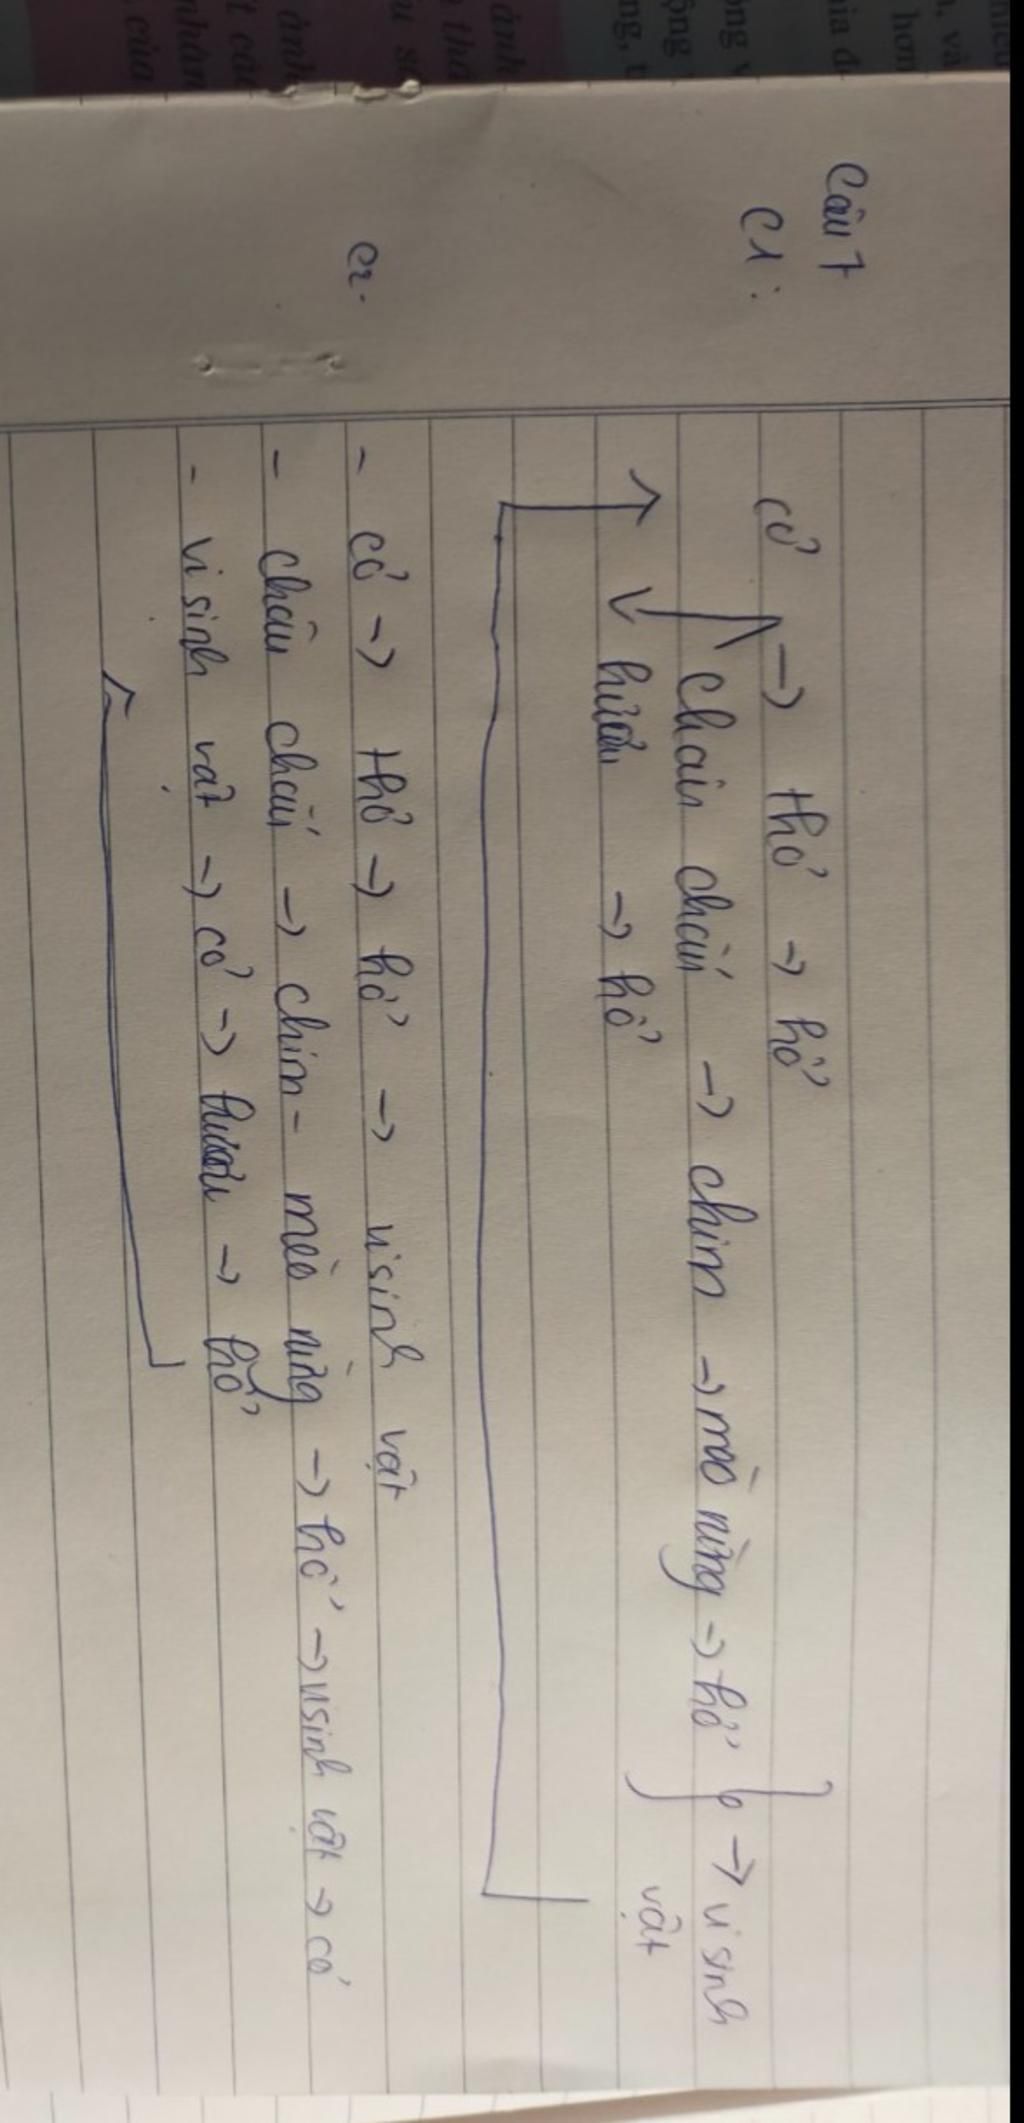 Câu 7
C1:
cỏ → thỏ → hổ
châu chấu → chim → mèo rừng → hổ → vi sinh
hươu → hổ vật
C2.
- cỏ → thỏ → hổ → vi sinh vật
- châu chấu → chim - mèo rừng → hổ → vi sinh vật → cỏ
- vi sinh vật → cỏ → hươu → hổ